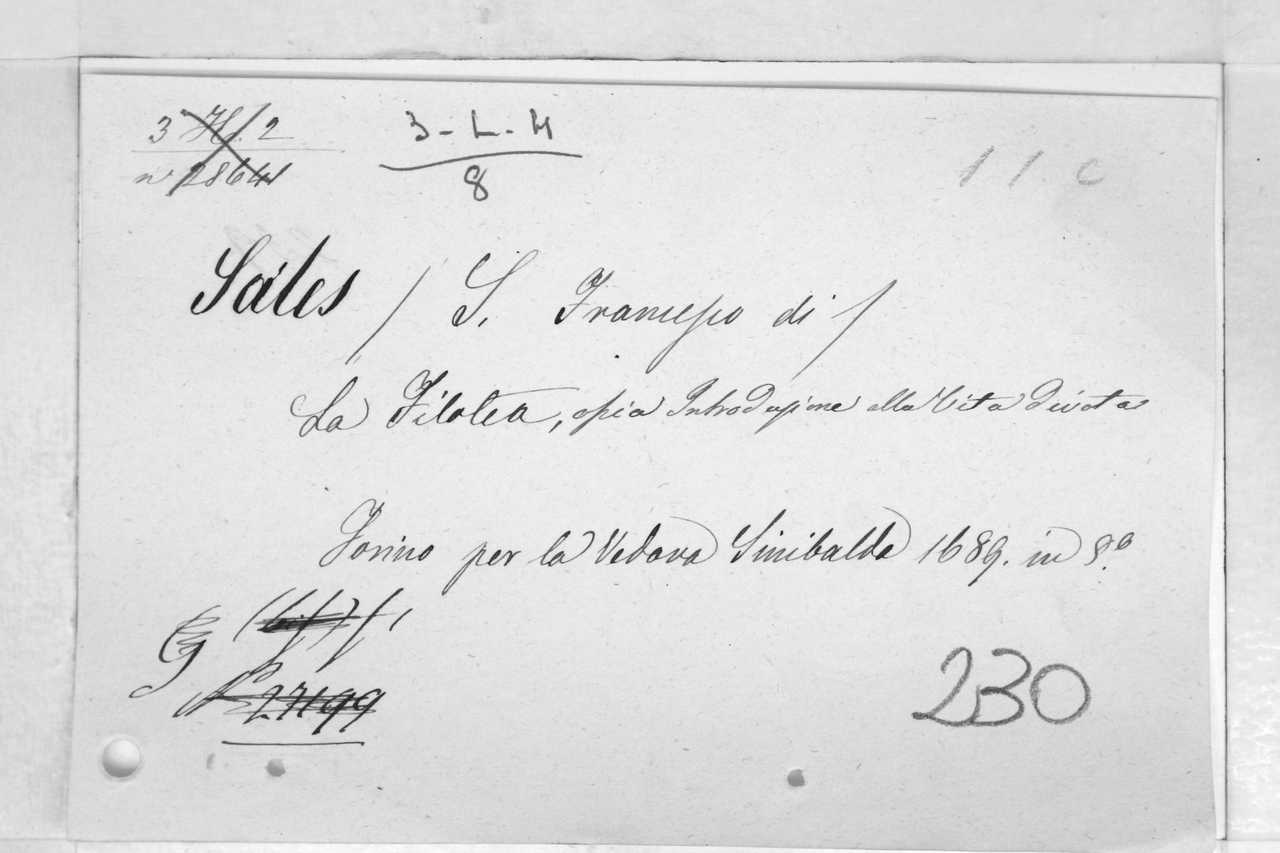 3 H. 2
n° 28641
3-L-H
8
11 C
Sales / S. Francesco di /
La Filotea, ossia Introduzione alla Vita Divota
Torino per la Vedova Sinibalda 1689. in 8.°
(bis)
27199
230